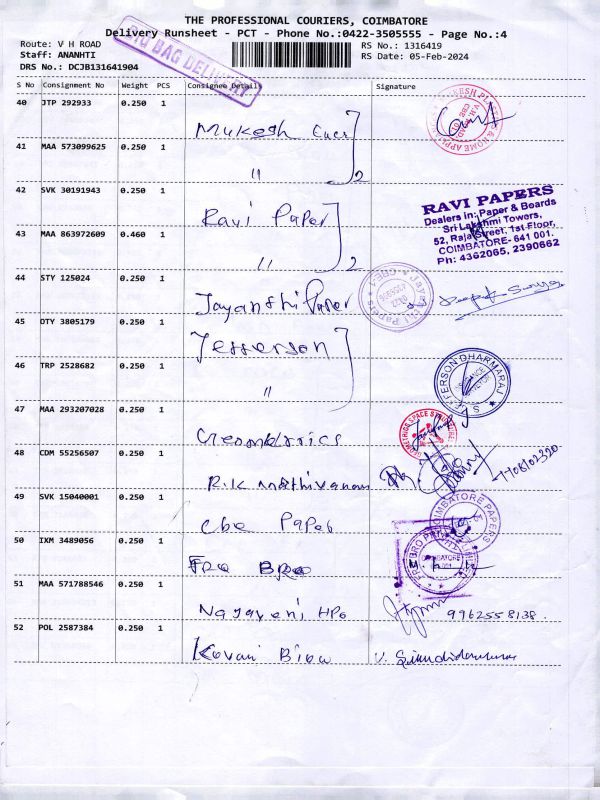 THE PROFESSIONAL COURIERS, COIMBATORE
Delivery Runsheet - PCT - Phone No.:0422-3505555 - Page No.:4
Route: V H ROAD
RS No.: 1316419
Staff: ANANHTI
RS Date: 05-Feb-2024
DRS No.: DCJB131641904
BIG BAG DELIVERY
S No Consignment No Weight PCS Consignee Details Signature
40 JTP 292933 0.250 1 Mukesh
41 MAA 573099625 0.250 1 " 2
42 SVK 30191943 0.250 1 Ravi Paper
RAVI PAPERS
Dealers in: Paper & Boards
Sri Lakshmi Towers,
52, Raja Street, 1st Floor,
COIMBATORE- 641 001.
Ph: 4362065, 2390662
43 MAA 863972609 0.460 1 " 2
44 STY 125024 0.250 1 Jayanthi Paper
45 OTY 3805179 0.250 1 Jefferson
46 TRP 2528682 0.250 1 "
JEFFERSON DHARMARAJ
47 MAA 293207028 0.250 1 Geometrics
48 CDM 55256507 0.250 1 R.K Mathivanan
49 SVK 15040001 0.250 1 Cbe Paper
COIMBATORE PAPERS
50 IKM 3489056 0.250 1 Fro Bro
51 MAA 571788546 0.250 1 Nagaveni HPo 9962558138
52 POL 2587384 0.250 1 Kovai